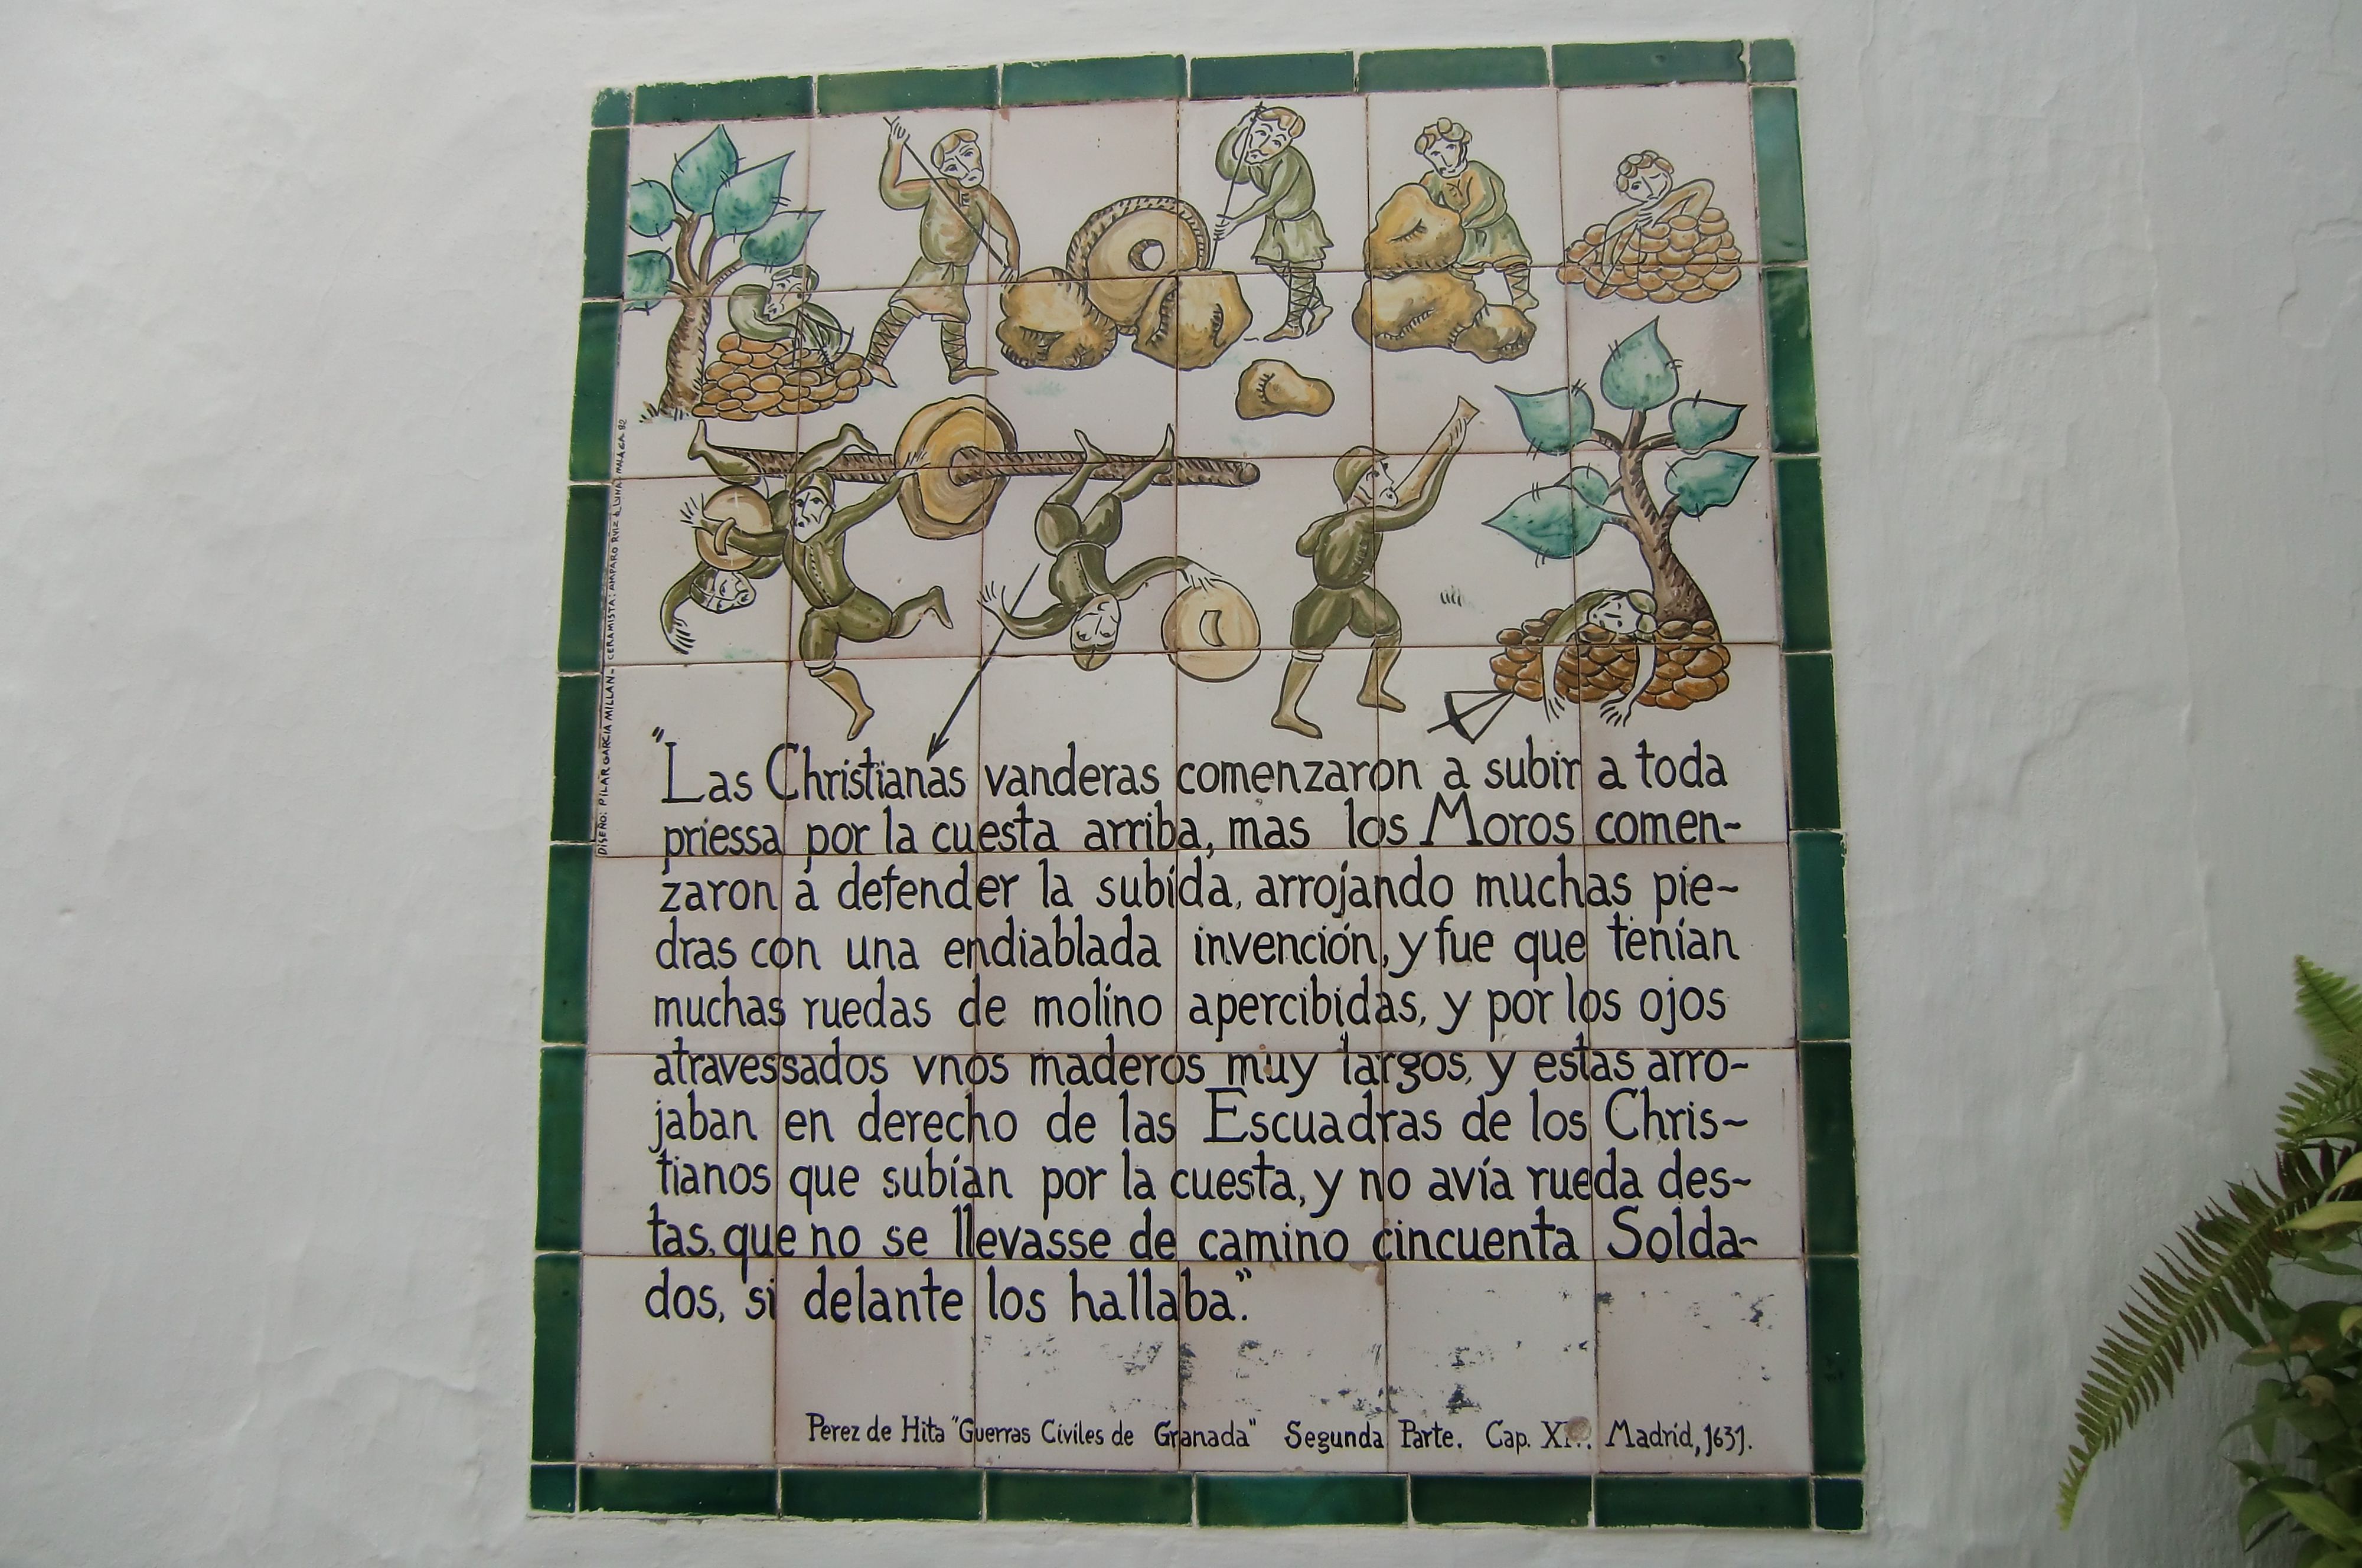 "Las Christianas vanderas comenzaron a subir a toda
priessa por la cuesta arriba, mas los Moros comen-
zaron a defender la subida, arrojando muchas pie-
dras con una endiablada invención, y fue que tenían
muchas ruedas de molino apercibidas, y por los ojos
atravessados vnos maderos muy largos, y estas arro-
jaban en derecho de las Escuadras de los Chris-
tianos que subían por la cuesta, y no avía rueda des-
tas, que no se llevasse de camino cincuenta Solda-
dos, si delante los hallaba."
Perez de Hita "Guerras Civiles de Granada" Segunda Parte. Cap. Madrid, 1631.
DISEÑO: PILAR GARCIA MILLAN - CERAMISTA: AMPARO RUIZ d LUNA. MALAGA 82